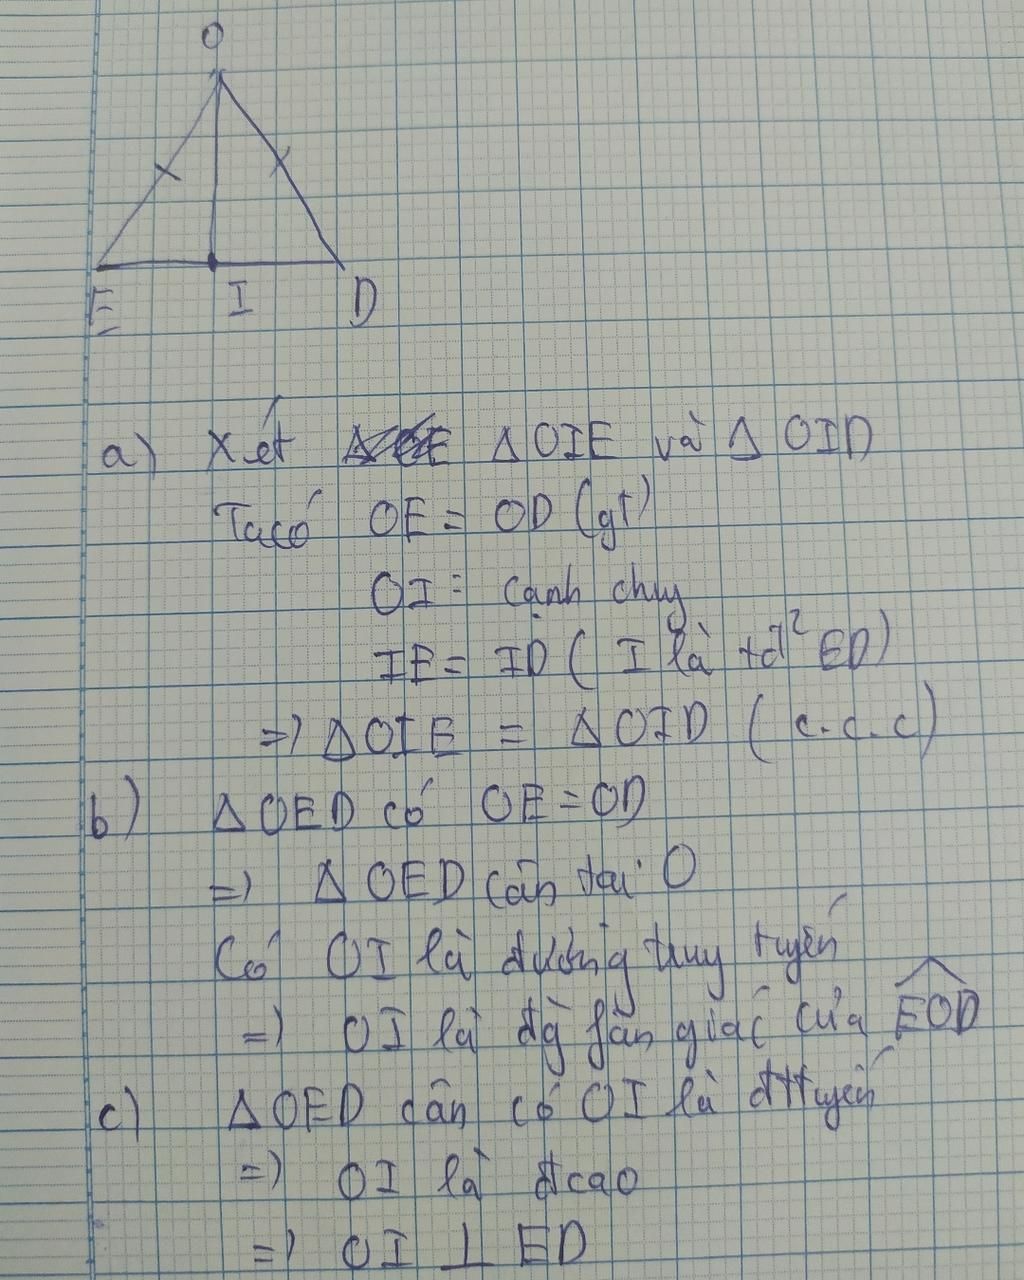 O
E I D
a) Xét ΔOIE và ΔOID
Ta có OE = OD (gt)
OI: cạnh chug
IE = ID ( I là tđ² ED)
=> ΔOIE = ΔOID ( c.c.c)
b) ΔOED có OE = OD
=> ΔOED cân tại O
Có OI là đường truy tuyến
=> OI là đg fân giác của EOD
c) ΔOED cân có OI là đttuyến
=> OI là đcao
=> OI ⊥ ED